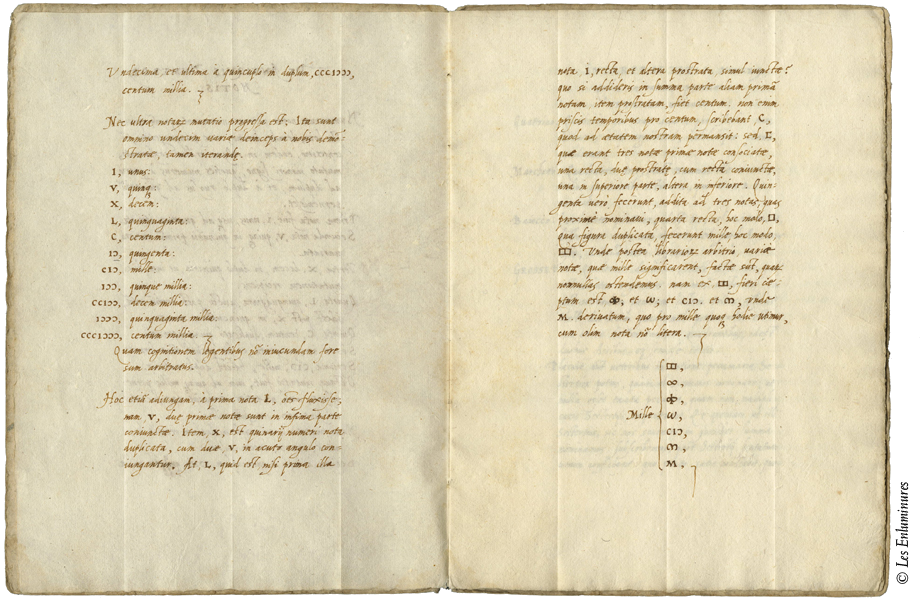 Vndecima, et ultima à quincuplo in duplum, CCCIↃↃↃ,
centum millia.
Nec ultra notarũ mutatio progressa est. Ita sunt
omnino undecim uariæ deinceps à nobis demõ-
stratæ, tamen iterandæ.
I, unus:
V, quinq;
X, decem:
L, quinquaginta:
C, centum:
IↃ, quingenta:
CIↃ, mille:
IↃↃ, quinque millia:
CCIↃↃ, decem millia:
IↃↃↃ, quinquaginta millia:
CCCIↃↃↃ, centum millia.
Quam cognitionem legentibus nõ iniucundam fore
sum arbitratus.
Hoc etiã adiungam, à prima nota I, oẽs fluxisse,
nam V, duę primæ notæ sunt in infima parte
coniunctæ. Item, X, est quinarij numeri nota
duplicata, cum duæ, V, in acuto angulo con-
iungantur. At, L, quid est nisi prima illa
nota I, recta, et altera prostrata, simul iunctæ?
quo si addideris in summa parte aliam primã
notam item prostratam, fiet centum. non enim
priscis temporibus pro centum, scribebant C,
quod ad ætatem nostram permansit: sed, [,
quæ erant tres notæ primæ notæ consociatæ,
una recta, duę prostratę, cum recta coniunctæ,
una in superiore parte, altera in inferiore. Quin-
genta uero fecerunt, addita ad tres notas, quas
proximè nominaui, quarta recta, hoc modo, □,
Qua figura duplicata, fecerunt mille, hoc modo,
◫. Vnde postea librariorũ arbitrio, uariæ
notæ, quæ mille significarent, factæ sũt, quarũ
nonnullas ostendemus. nam ex ◫, fieri cœ-
ptum est ф, et ω, et CIↃ. et ო, unde
M. deriuatum, quo pro mille quoq; hodie utimur,
cum olim nota nõ litera.
Mille
◫,
∞,
ф,
ω,
CIↃ,
ო,
M.
© Les Enluminures